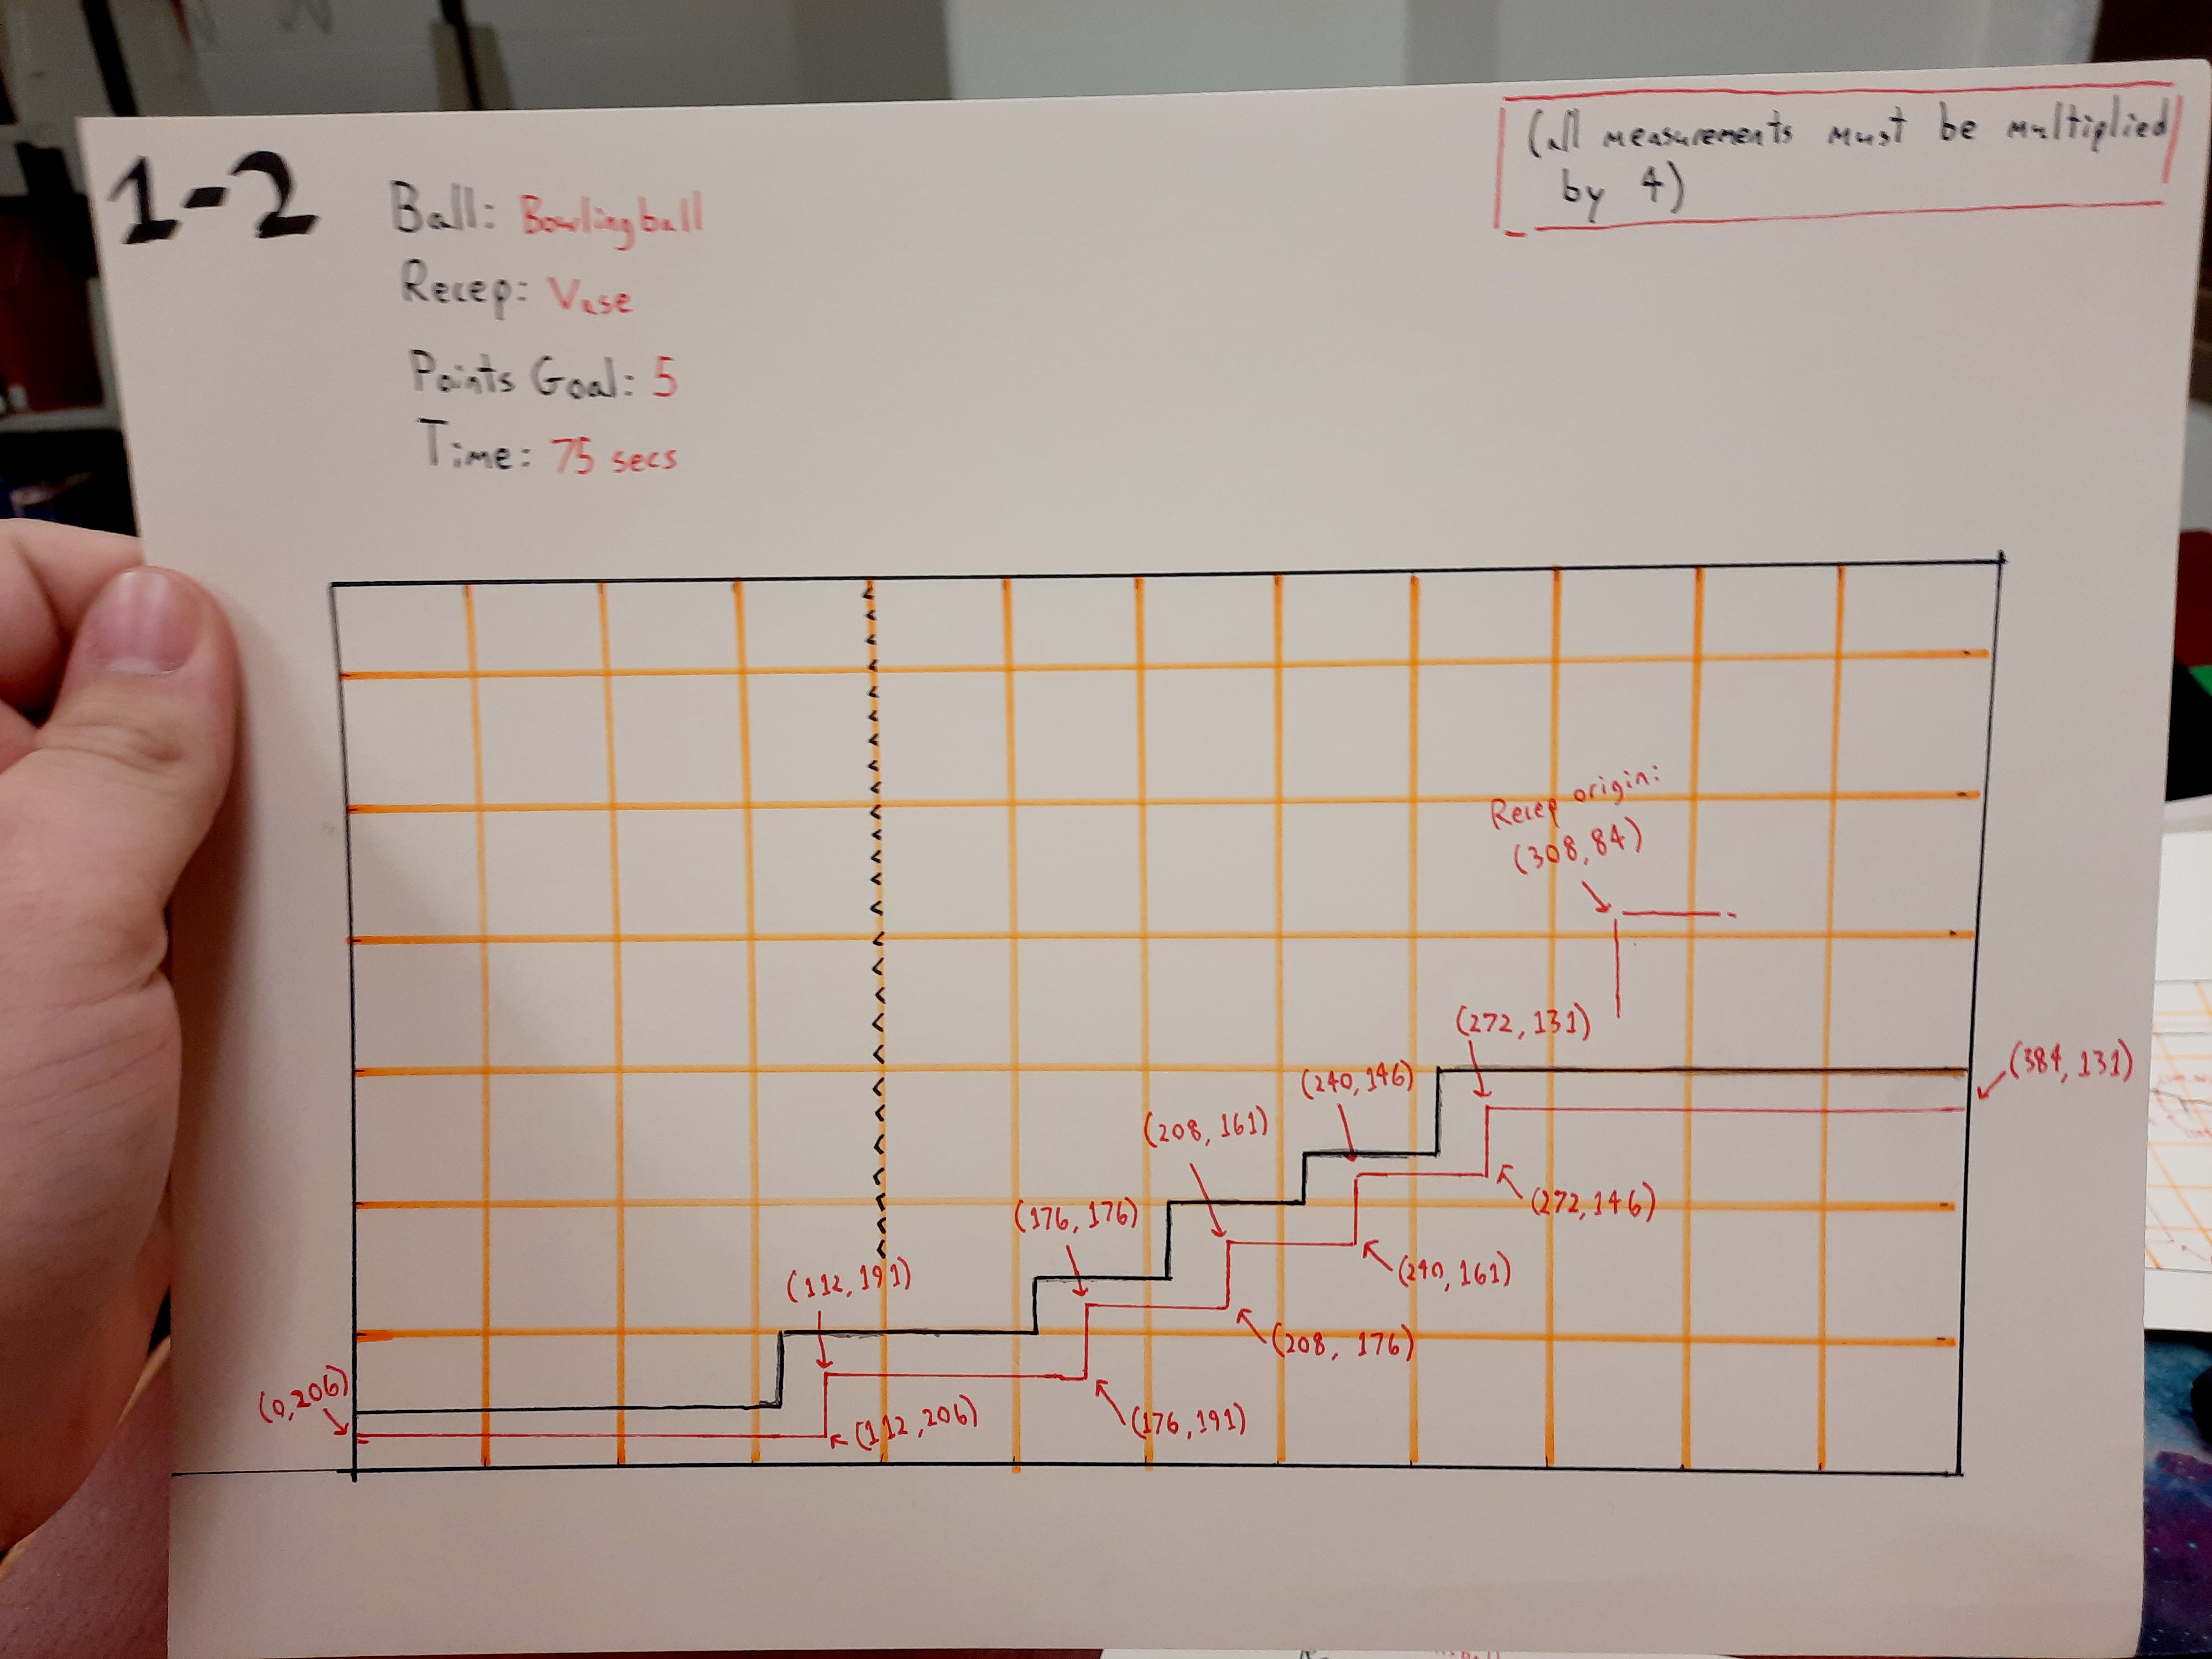 1-2
Ball: Bowlingball
Recep: Vase
Points Goal: 5
Time: 75 secs
(all measurements must be multiplied
by 4)
Recep origin:
(308,84)
(272,131)
(384,131)
(240,146)
(208,161)
(272,146)
(176,176)
(240,161)
(112,191)
(208, 176)
(0,206)
(112,206)
(176,191)